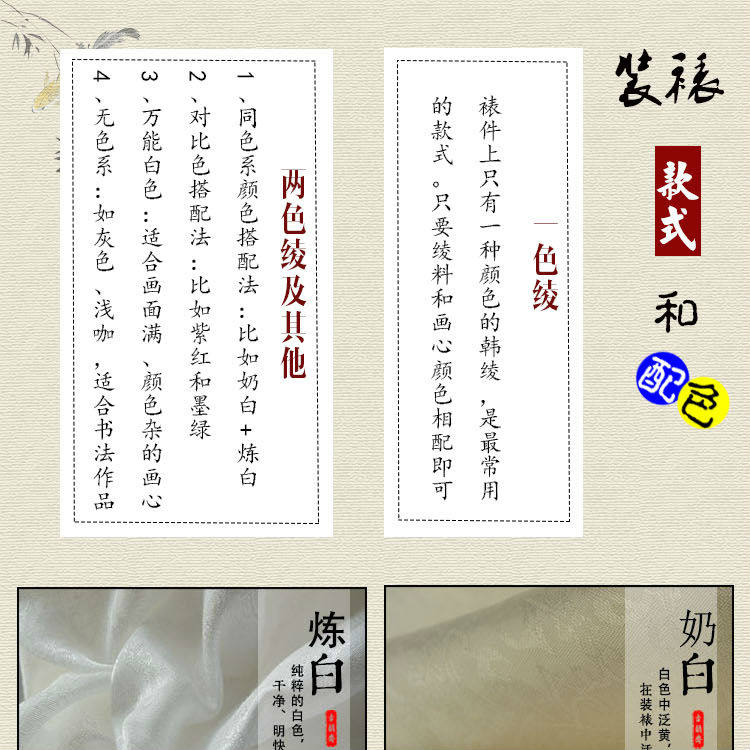 装裱
款式
和
配色
一色绫
裱件上只有一种颜色的韩绫,是最常用
的款式。只要绫料和画心颜色相配即可
两色绫及其他
1、同色系颜色搭配法:比如奶白+炼白
2、对比色搭配法:比如紫红和墨绿
3、万能白色:适合画面满、颜色杂的画心
4、无色系:如灰色、浅咖,适合书法作品
奶白
白色中泛黄,
在装裱中
炼白
纯粹的白色,
干净、明快